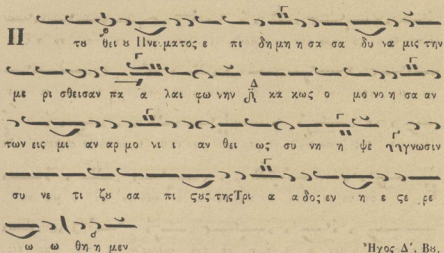 Π του θει ου Πνε ματος ε πι δη μη η σα σα δυ να μις την
με ρι σθεισαν πα α λαι φω νην Δ κα κως ο μο νο η σα αν
των εις μι αν αρ μο νι ι αν θει ως συ νη η ψε γνωσιν
συ νε τι ζου σα πι ζους της Τρι α α δος εν η ε ζε ρε
ω ω θη η μεν Ἦχος Δ΄. Βου.